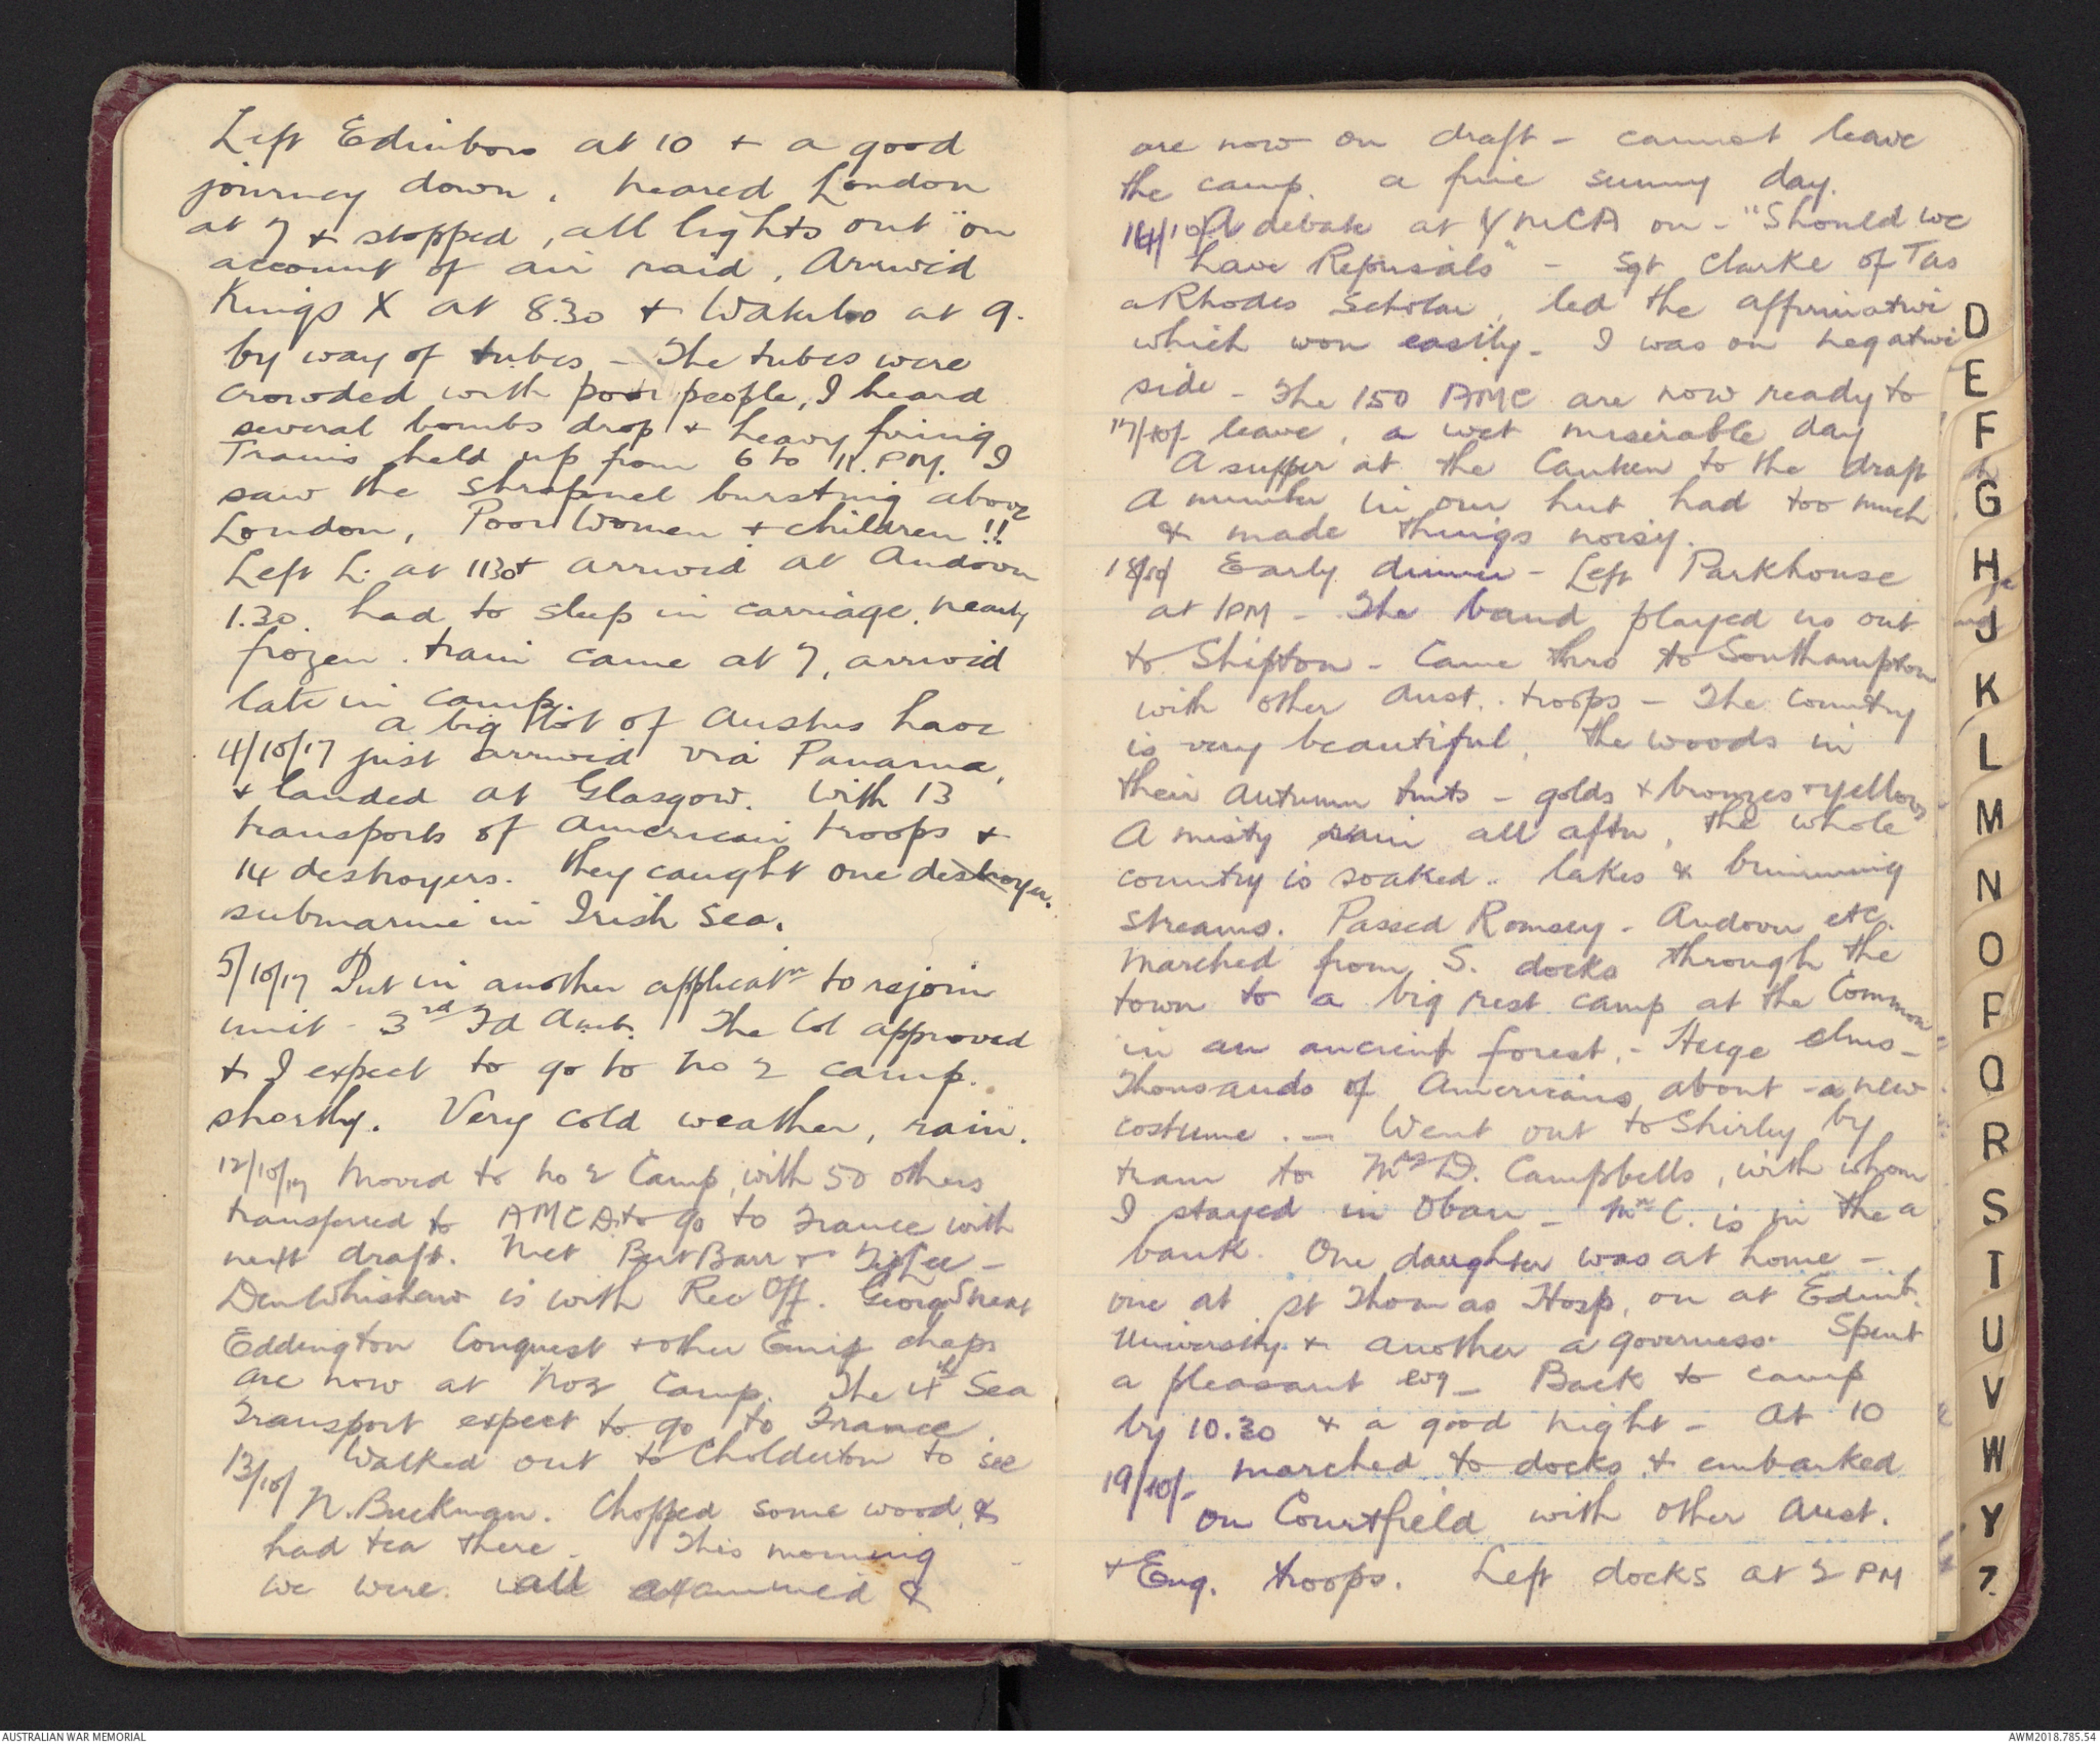 Left Edinboro at 10 + a good
journey down. Neared London
at 7 + stopped, all lights out on
account of air raid, Arrived
Kings X at 8.30 + Waterloo at 9.
by way of tubes - The tubes were
crowded with poor people, I heard
several bombs drop + heavy firing
Trains held up from 6 to 11. PM. I
saw the shrapnel bursting above
London, Poor Women + children!!
Left L. at 1130 + arrived at Andover
1.30. had to sleep in carriage. nearly
frozen. train came at 7, arrived
late in camp.
a big lot of Austns have
4/10/17 just arrived via Panama,
+ landed at Glasgow. With 13
transports of American troops +
14 destroyers. They caught one destroyer.
submarine in Irish Sea.
5/10/17 Put in another applicatn to rejoin
unit - 3rd Fd Amb. The Col approved
+ I expect to go to No 2 camp.
shortly. Very cold weather, rain.
12/10/17 Moved to No 2 Camp, with 50 others
transferred to AMCD. to go to France with
next draft. Met Bert Barr +
Den Whishaw is with Rec Off. George
Eddington Conquest + other chaps
are now at No 2 Camp. The 4th Sea
Transport expect to go to France
13/10/ Walked out to Cholderton to see
N. Buckman. Chopped some wood, &
had tea there. This morning
we were all examined &
are now on draft - cannot leave
the camp. a fine sunny day.
14/10/ A debate at YMCA on - "Should we
have Reprisals" - Sgt Clarke of Tas
a Rhodes Scholar, led the affirmative
which won easily. I was on negative
side - The 150 AMC are now ready to
17/10/- leave, a wet miserable day
A supper at the Canteen to the draft
A number in our hut had too much
& made things noisy.
18/10/ Early dinner - Left Parkhouse
at 1PM - The band played us out
to Shipton - Came thro to Southampton
with other Aust. troops - The Country
is very beautiful, the woods in
their Autumn tints - golds + bronzes + yellows
A misty rain all aftn, the whole
country is soaked.. lakes & brimming
streams. Passed Romsey - Andover etc.
Marched from S. docks through the
town to a big rest camp at the Common
in an ancient forest, - Huge elms -
Thousands of Americans about - a new
costume. - Went out to Shirley by
tram to Mrs D. Campbells, with whom
I stayed in Oban - Mr C. is in the a
bank. One daughter was at home -
one at St Thomas Hosp, on at Edinb.
University + another a governess. Spent
a pleasant evg - Back to camp
by 10.30 & a good night - At 10
19/10/- marched to docks, + embarked
on Courtfield with other Aust.
+ Eng. troops. Left docks at 2 PM
D
E
F
G
H
J
K
L
M
N
O
P
Q
R
S
T
U
V
W
Y
Z
AUSTRALIAN WAR MEMORIAL
AWM2018.785.54